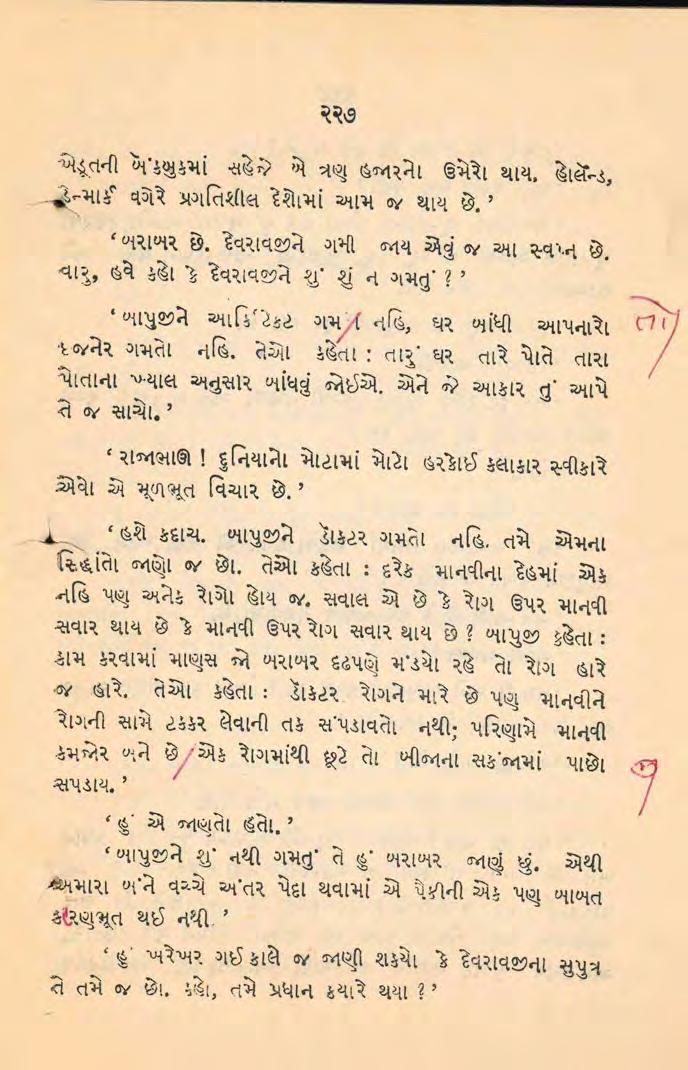 ૨૨૭
ખેડૂતની બેંકબુકમાં સહેજે બે ત્રણ હજારનો ઉમેરો થાય. હોલૅન્ડ,
ડેન્માર્ક વગેરે પ્રગતિશીલ દેશોમાં આમ જ થાય છે.’
‘બરાબર છે. દેવરાવજીને ગમી જાય એવું જ આ સ્વપ્ન છે.
વારુ, હવે કહો કે દેવરાવજીને શું શું ન ગમતું ?’
‘બાપુજીને આર્કિટેકટ ગમતા નહિ, ઘર બાંધી આપનારો તો
ઇજનેર ગમતો નહિ. તેઓ કહેતા : તારું ઘર તારે પોતે તારા
પોતાના ખ્યાલ અનુસાર બાંધવું જોઈએ. એને જે આકાર તું આપે
તે જ સાચો.’
‘રાજાભાઉ ! દુનિયાનો મોટામાં મોટો હરકોઈ કલાકાર સ્વીકારે
એવો એ મૂળભૂત વિચાર છે.’
‘હશે કદાચ. બાપુજીને ડૉકટર ગમતો નહિ. તમે એમના
સિદ્ધાંતો જાણો જ છો. તેઓ કહેતા : દરેક માનવીના દેહમાં એક
નહિ પણ અનેક રોગો હોય જ. સવાલ એ છે કે રોગ ઉપર માનવી
સવાર થાય છે કે માનવી ઉપર રોગ સવાર થાય છે ? બાપુજી કહેતા :
કામ કરવામાં માણસ જો બરાબર દૃઢપણે મંડયો રહે તો રોગ હારે
જ હારે. તેઓ કહેતા : ડૉકટર રોગને મારે છે પણ માનવીને
રોગની સામે ટકકર લેવાની તક સંપડાવતો નથી; પરિણામે માનવી
કમજોર બને છે એક રોગમાંથી છૂટે તો બીજાના સકંજામાં પાછો
સપડાય.’
‘હું એ જાણતો હતો.’
‘બાપુજીને શું નથી ગમતું તે હું બરાબર જાણું છું. એથી
અમારા બંને વચ્ચે અંતર પેદા થવામાં એ પૈકીની એક પણ બાબત
કારણભૂત થઈ નથી.’
‘હું ખરેખર ગઈ કાલે જ જાણી શકયો કે દેવરાવજીના સુપુત્ર
તે તમે જ છો. કહો, તમે પ્રધાન કયારે થયા ?’